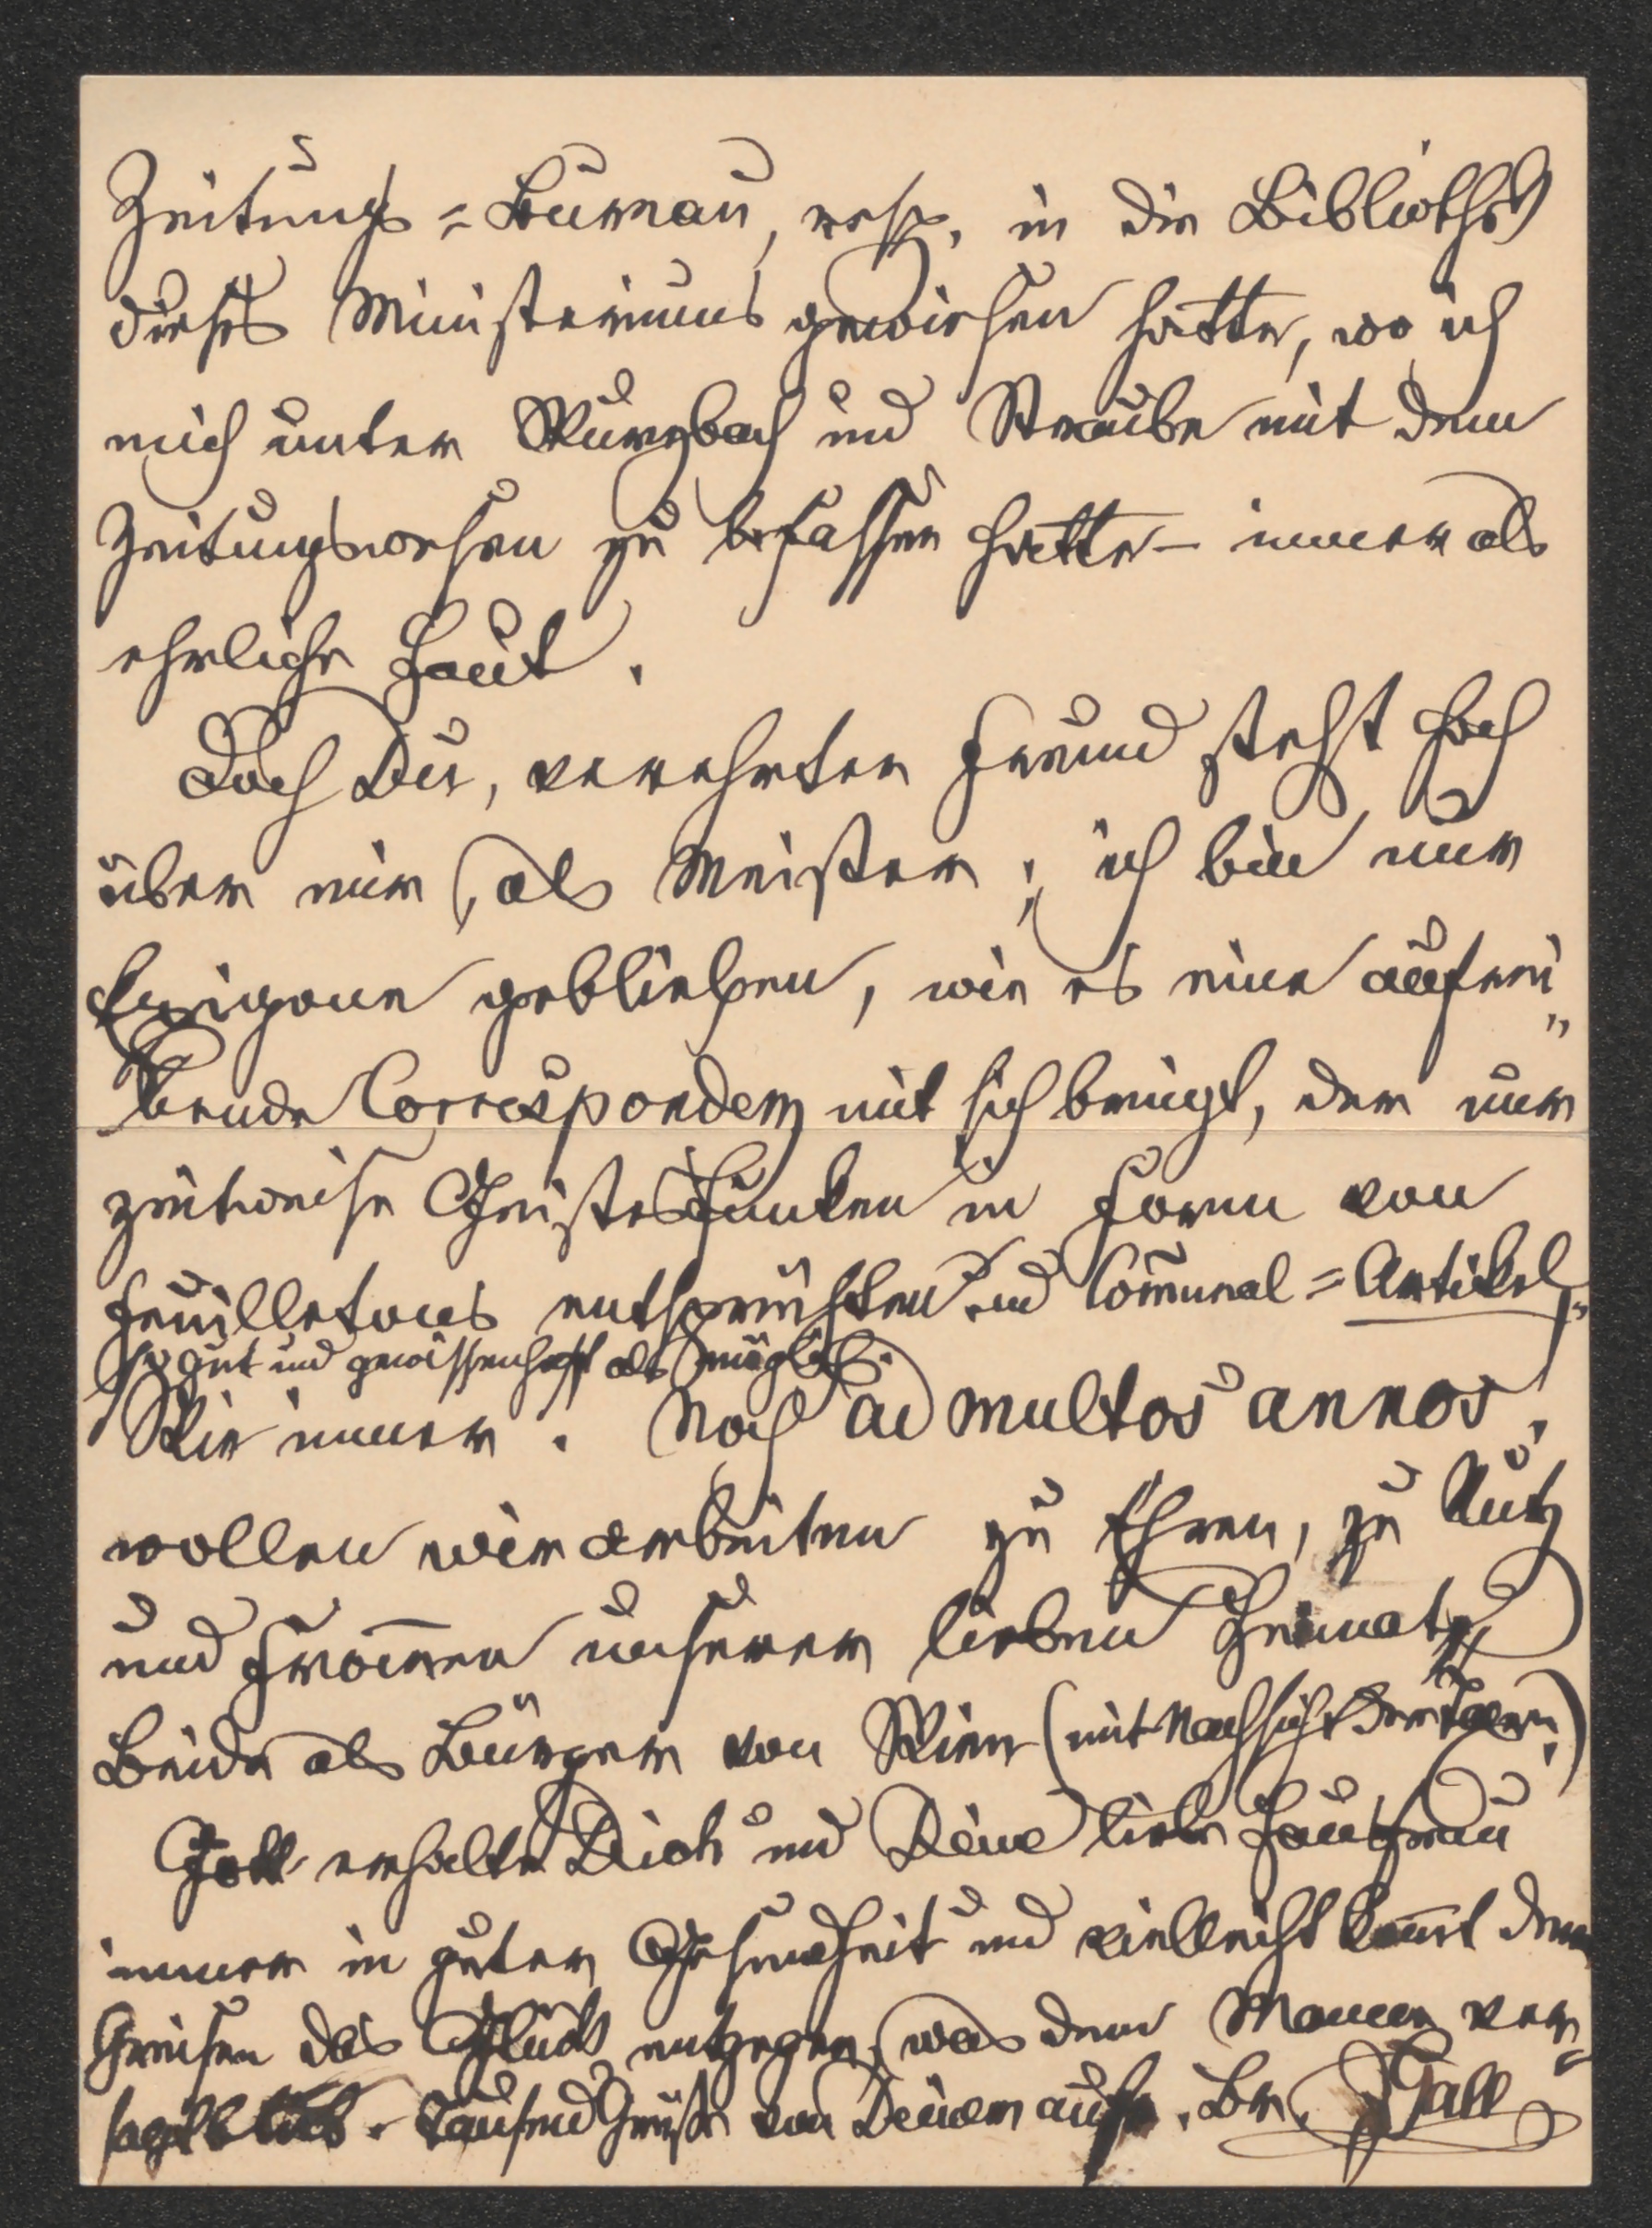 Zeitungs=Bureau, resp. in die Bibliothek
dieses Ministeriums gewiesen hatte, wo ich
mich unter Wurzbach und Straube mit dem
Zeitungswesen zu befassen hatte – immer als
ehrliche Haut.
Doch Du, verehrter Freund stehst hoch
über mir, als Meister; ich bin nur
Epigone geblieben, wie es eine aufrei„
bende Correspondenz mit sich bringt, der nur
zeitweise Geistesfunken in Form von
Feuilletons entsprühten und Communal=Artikel,
so gut und gewissenhaft als möglich.
Wie immer. Noch ad multos annos,
wollen wir arbeiten zu Ehren, zu Nutz
und Frommen unserer lieben Heimat,
Beide als Bürger von Wien (mit Nachsicht der Taxen!)
Gott erhalte Dich und Deine liebe Hausfrau
immer in guter Gesundheit und vielleicht kommt dem
Greisen das Glück entgegen, was dem Manne ver=
sagt blieb. Tausend Grüße von Deinem aufr. Br. Gall